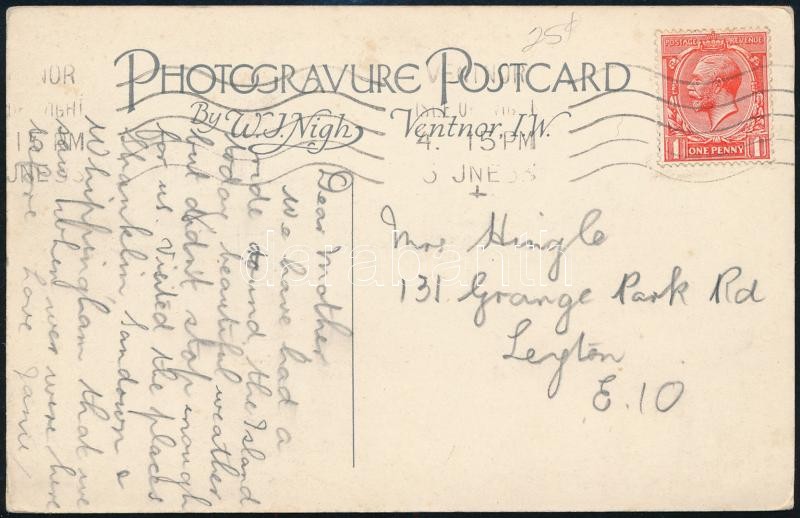 25¢
PHOTOGRAVURE POSTCARD
By W.J. Nigh, Ventnor, I.W.
POSTAGE REVENUE
1 ONE PENNY 1
VENTNOR
4. 15 PM
JNE 33
NOR
15 PM
Mrs Hingle
131 Grange Park Rd
Leyton
E.10
Dear Mother
We have had a
ride round the Island
today beautiful weather
but didn't stop enough
for us. Visited the places
Shanklin, Sandown &
Whippingham that we
saw when we were here
before Love
darabanth